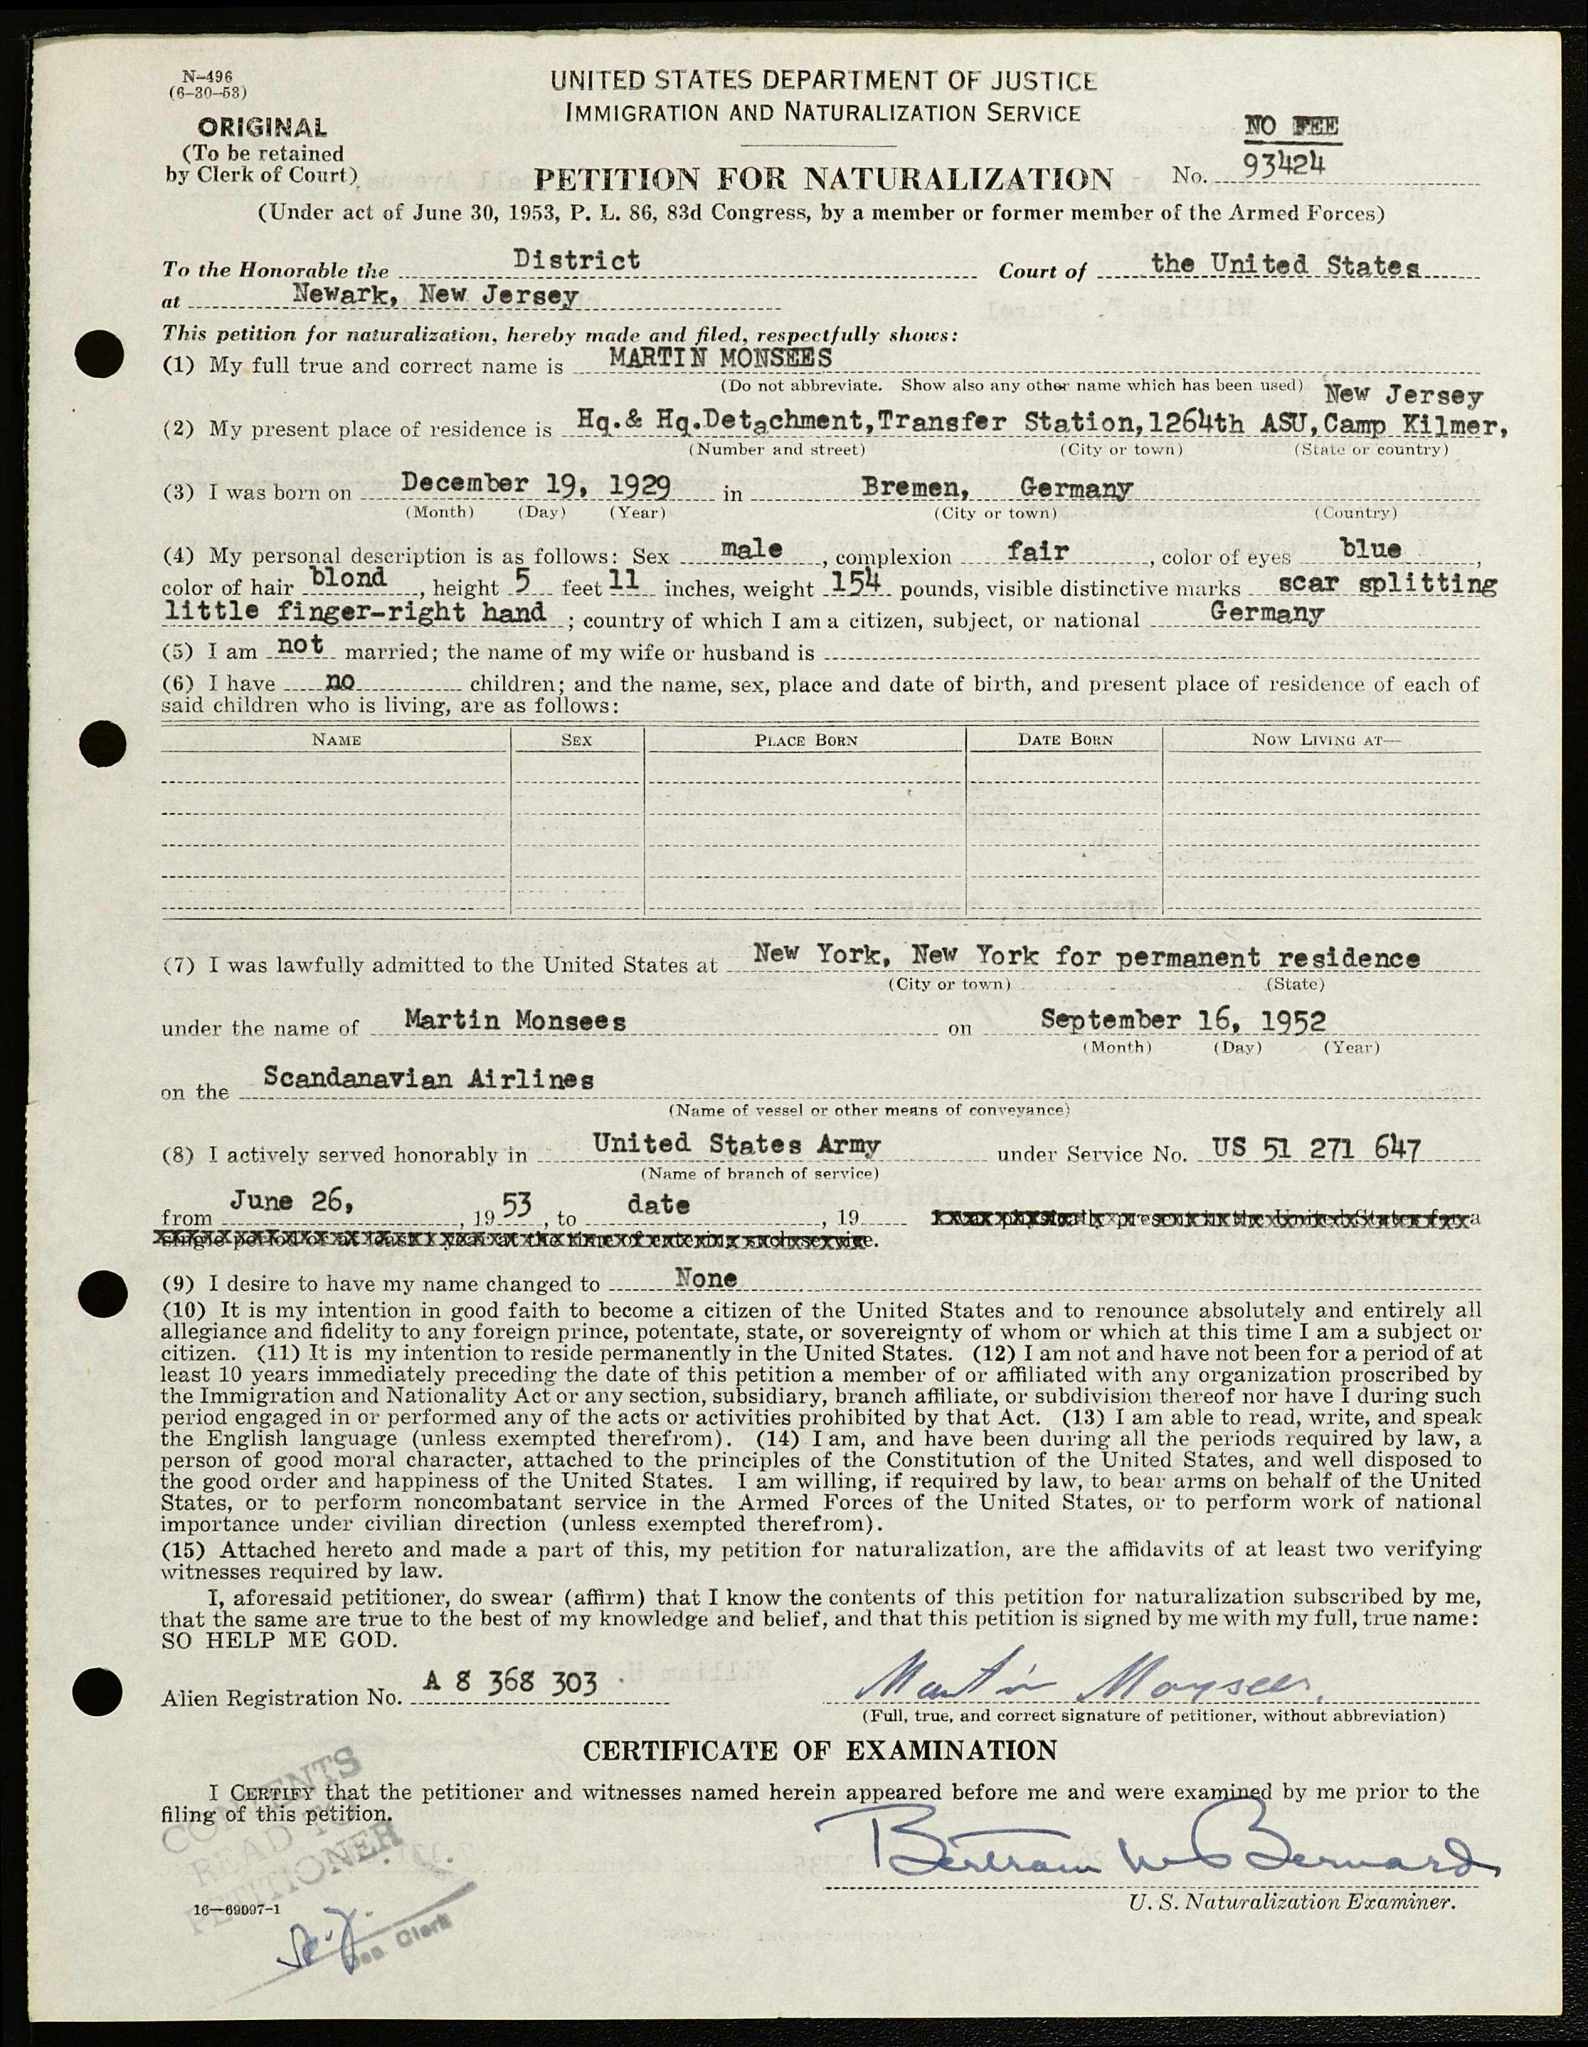 N-496
(6-30-53)
ORIGINAL
(To be retained
by Clerk of Court)
UNITED STATES DEPARTMENT OF JUSTICE
IMMIGRATION AND NATURALIZATION SERVICE
NO FEE
PETITION FOR NATURALIZATION No. 93424
(Under act of June 30, 1953, P. L. 86, 83d Congress, by a member or former member of the Armed Forces)
To the Honorable the District Court of the United States
at Newark, New Jersey
This petition for naturalization, hereby made and filed, respectfully shows:
(1) My full true and correct name is MARTIN MONSEES
(Do not abbreviate. Show also any other name which has been used) New Jersey
(2) My present place of residence is Hq.& Hq.Detachment,Transfer Station,1264th ASU,Camp Kilmer,
(Number and street) (City or town) (State or country)
(3) I was born on December 19, 1929 in Bremen, Germany
(Month) (Day) (Year) (City or town) (Country)
(4) My personal description is as follows: Sex male, complexion fair, color of eyes blue,
color of hair blond, height 5 feet 11 inches, weight 154 pounds, visible distinctive marks scar splitting
little finger-right hand; country of which I am a citizen, subject, or national Germany
(5) I am not married; the name of my wife or husband is
(6) I have no children; and the name, sex, place and date of birth, and present place of residence of each of
said children who is living, are as follows:
NAME SEX PLACE BORN DATE BORN NOW LIVING AT—
(7) I was lawfully admitted to the United States at New York, New York for permanent residence
(City or town) (State)
under the name of Martin Monsees on September 16, 1952
(Month) (Day) (Year)
on the Scandanavian Airlines
(Name of vessel or other means of conveyance)
(8) I actively served honorably in United States Army under Service No. US 51 271 647
(Name of branch of service)
from June 26, 1953, to date, 19
(9) I desire to have my name changed to None
(10) It is my intention in good faith to become a citizen of the United States and to renounce absolutely and entirely all
allegiance and fidelity to any foreign prince, potentate, state, or sovereignty of whom or which at this time I am a subject or
citizen. (11) It is my intention to reside permanently in the United States. (12) I am not and have not been for a period of at
least 10 years immediately preceding the date of this petition a member of or affiliated with any organization proscribed by
the Immigration and Nationality Act or any section, subsidiary, branch affiliate, or subdivision thereof nor have I during such
period engaged in or performed any of the acts or activities prohibited by that Act. (13) I am able to read, write, and speak
the English language (unless exempted therefrom). (14) I am, and have been during all the periods required by law, a
person of good moral character, attached to the principles of the Constitution of the United States, and well disposed to
the good order and happiness of the United States. I am willing, if required by law, to bear arms on behalf of the United
States, or to perform noncombatant service in the Armed Forces of the United States, or to perform work of national
importance under civilian direction (unless exempted therefrom).
(15) Attached hereto and made a part of this, my petition for naturalization, are the affidavits of at least two verifying
witnesses required by law.
I, aforesaid petitioner, do swear (affirm) that I know the contents of this petition for naturalization subscribed by me,
that the same are true to the best of my knowledge and belief, and that this petition is signed by me with my full, true name:
SO HELP ME GOD.
Alien Registration No. A 8 368 303 Martin Monsees.
(Full, true, and correct signature of petitioner, without abbreviation)
CERTIFICATE OF EXAMINATION
I CERTIFY that the petitioner and witnesses named herein appeared before me and were examined by me prior to the
filing of this petition.
CONTENTS
READ TO
PETITIONER
Dep. Clerk
Bertram W Bernard
U. S. Naturalization Examiner.
16—69097-1